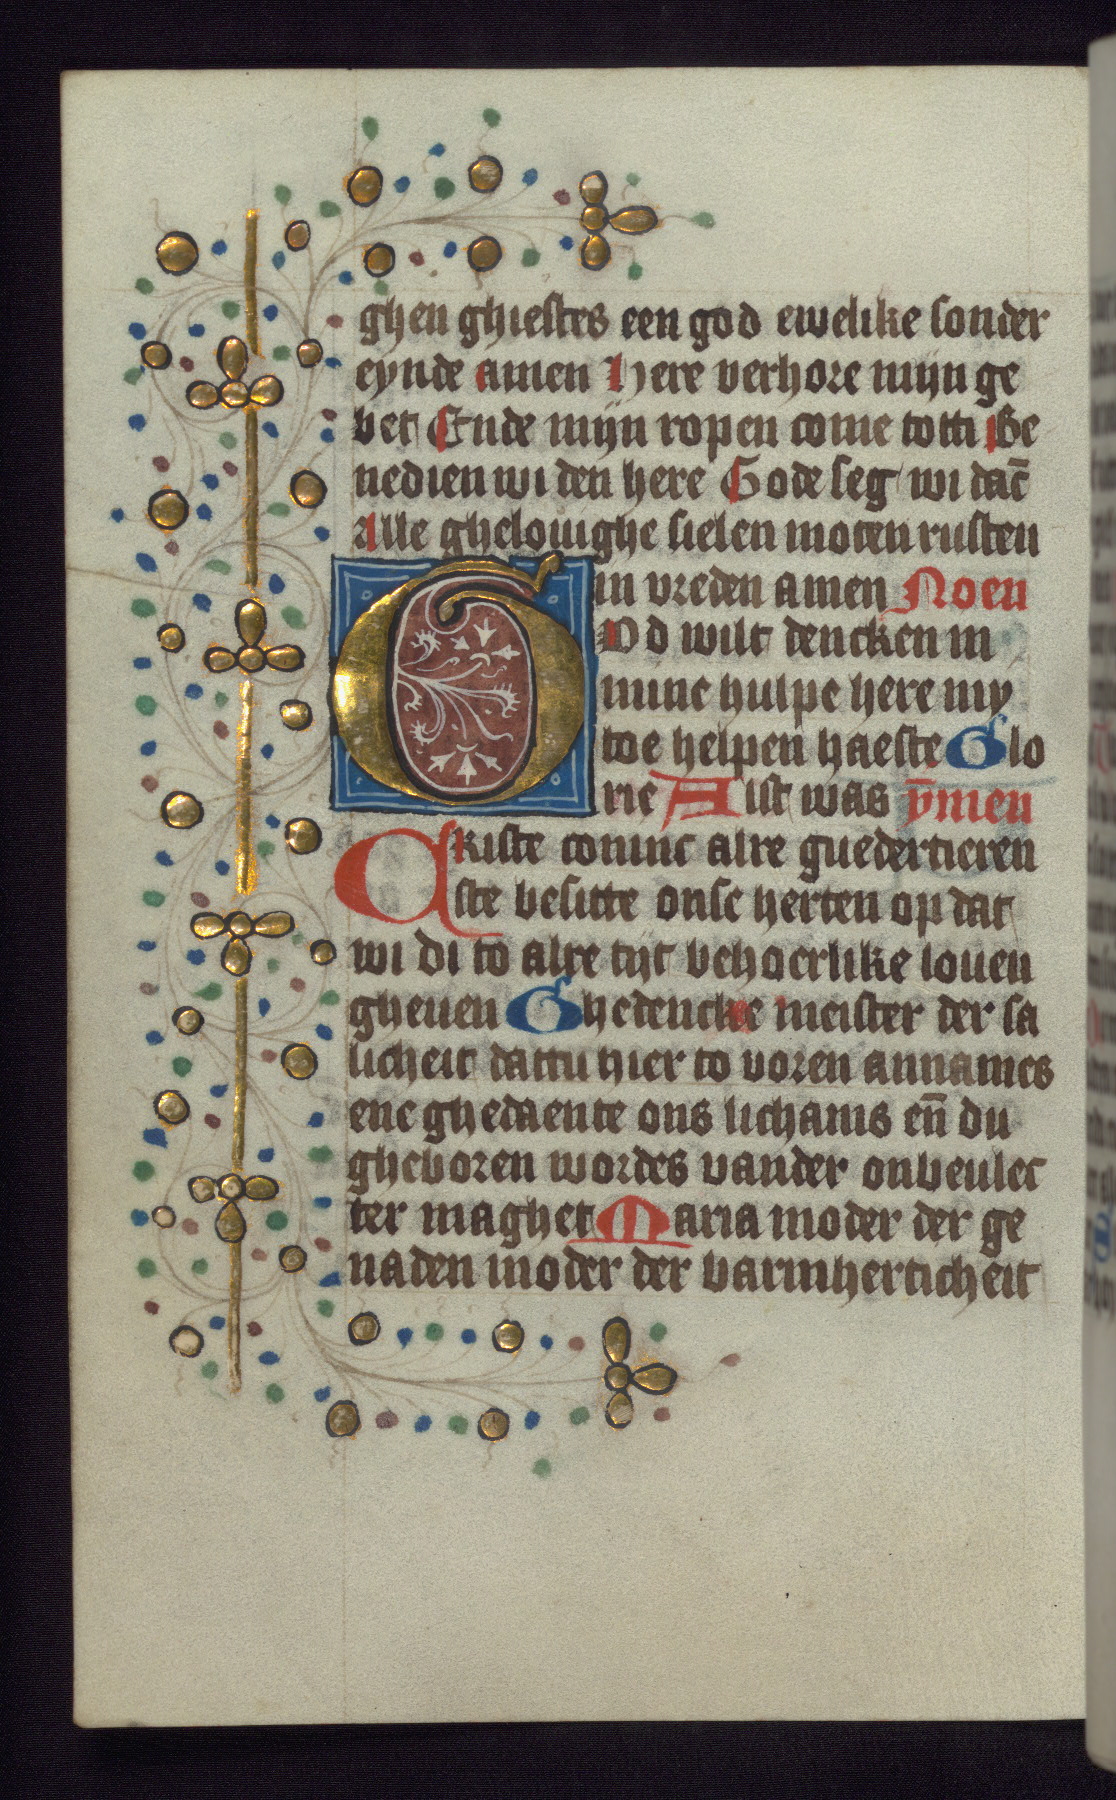 ghen ghiestes een god ewelike sonder
eynde amen Here verhore mijn ge
bet Ende mijn ropen come totti Be
nedien wi den here Gode seg wi dāc
Alle ghelouighe sielen moten rusten
in vreden amen Noen
God wilt dencken in
minne hulpe here my
toe helpen haeste Glo
rie Alst was ȳmen
Criste coninc alre guedertieren
ste besitte onse herten op dat
wi di to alre tijt behoerlike louen
gheuen Ghedencke meister der sa
licheit dattu hier to voren annames
ene ghedaente ons lichams eñ du
gheboren wordes vander onbeulec
ter maghet Maria moder der ge
naden moder der barmherticheit